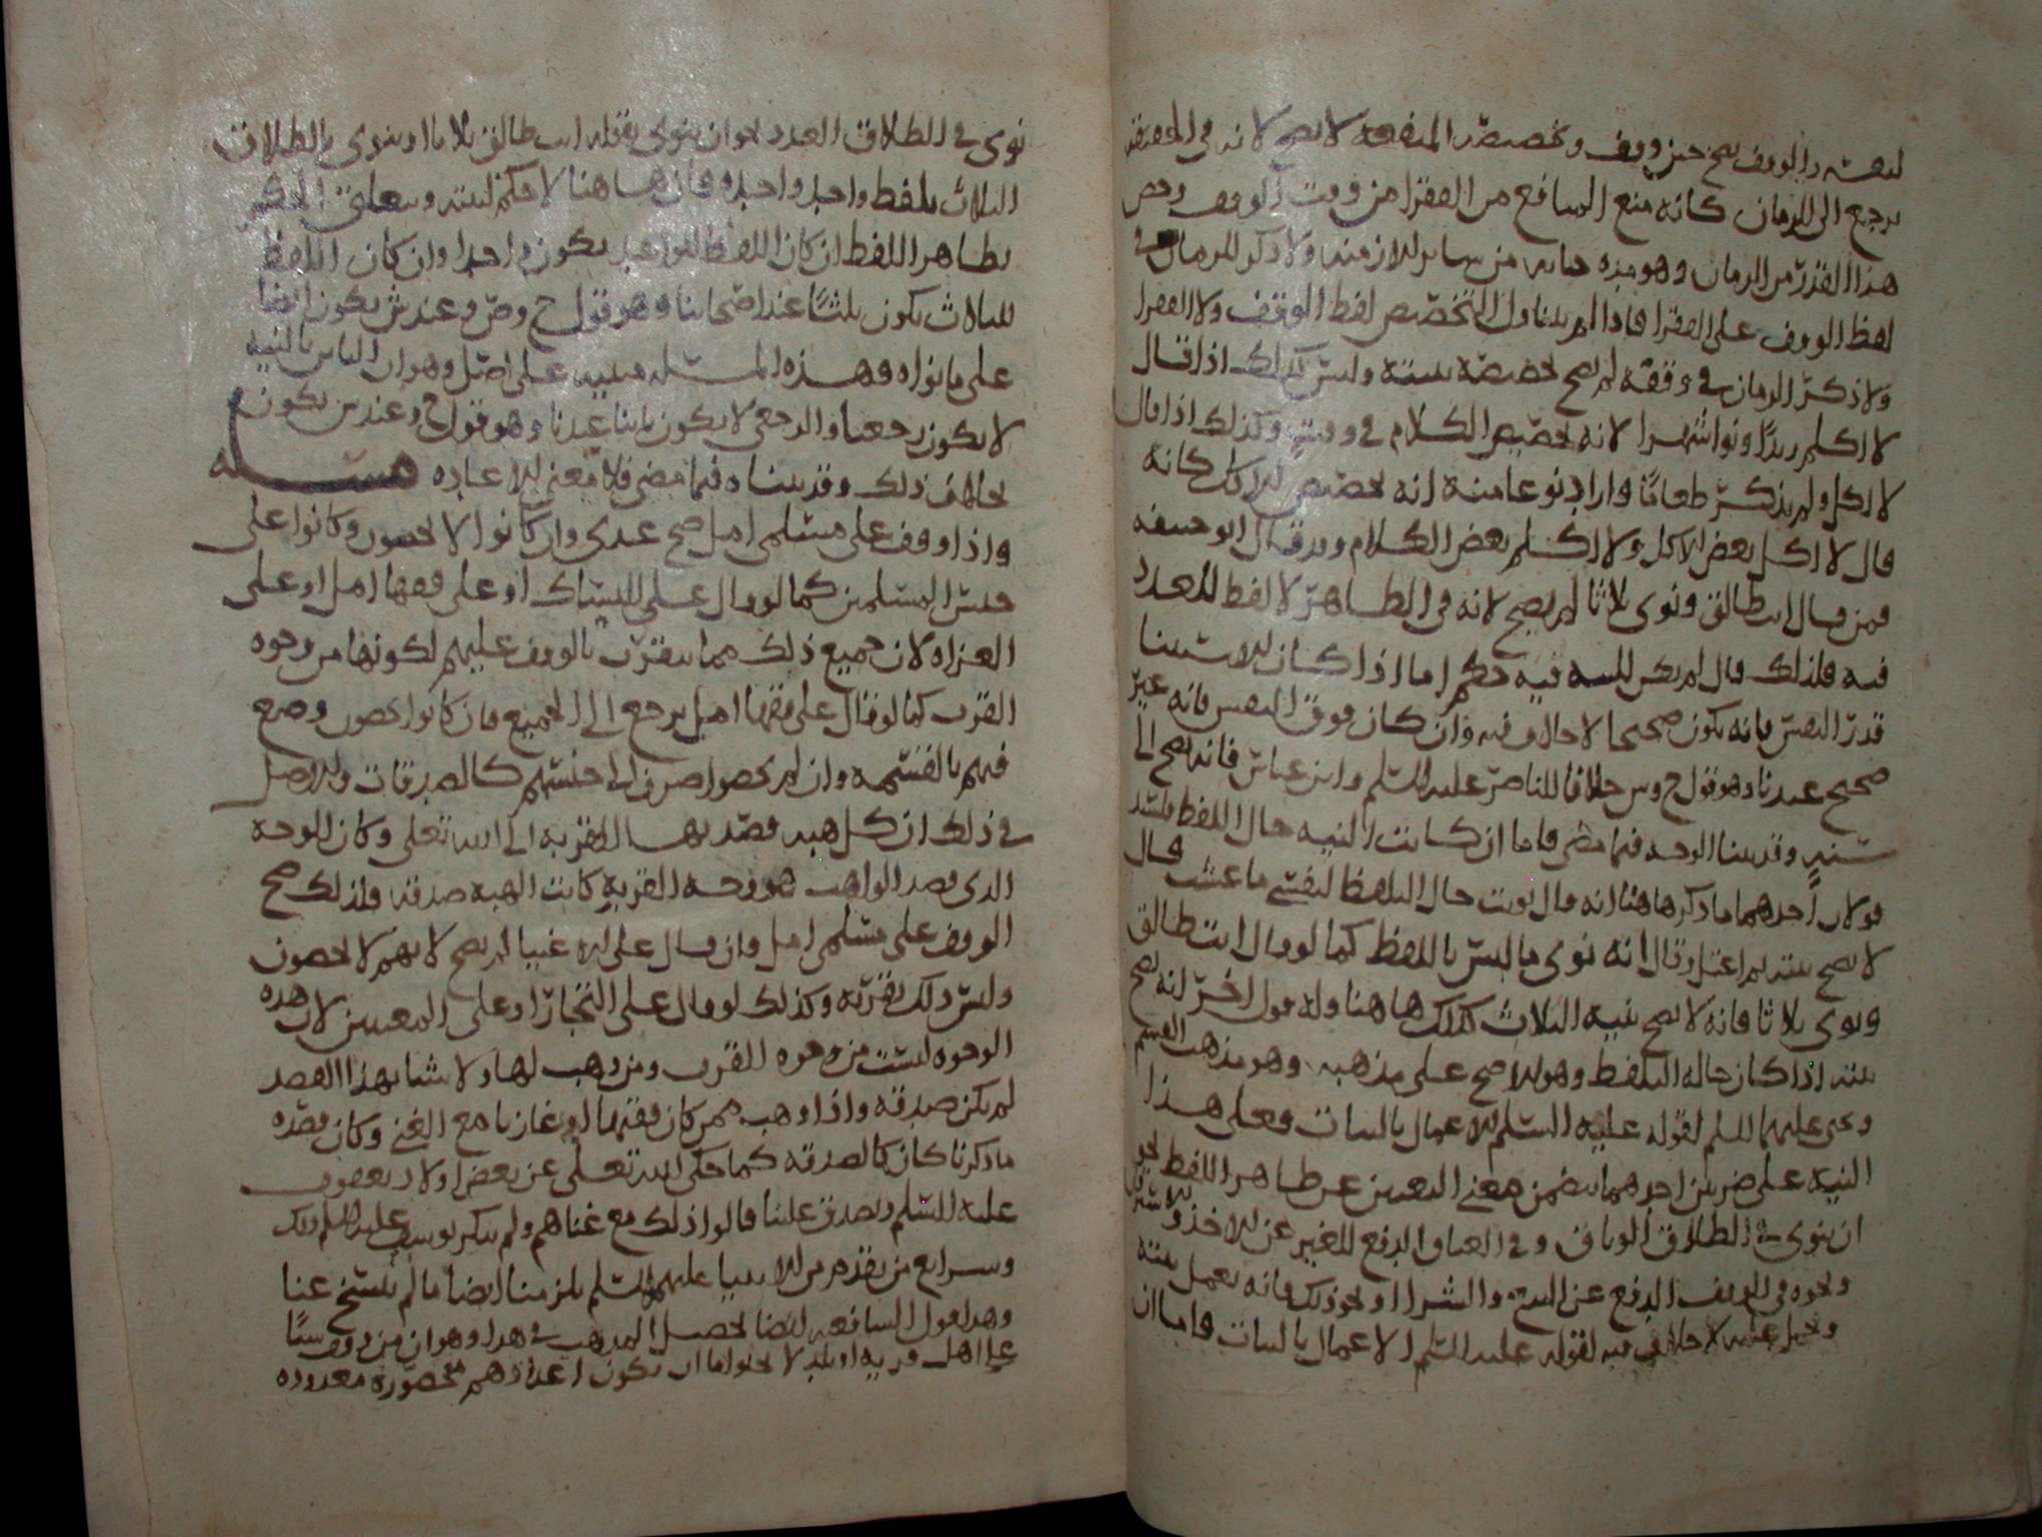 لنفسه والوقف صح حين وقف وتخصيص المنفعة لا يصح لانه في الحقيقة
يرجع الى الزمان كانه منع المنافع من الفقرا من وقت الوقف وخص
هذا القدر من الزمان وهو مده حياته من ساير الازمنه ولا ذكر للزمان في
لفظ الوقف على الفقرا فاذا لم يتناول التخصيص لفظ الوقف ولا الفقرا
ولا ذكر الزمان في وقفه لم يصح تخصيصه بنيته وليس كذلك اذا قال
لا اكلم زيدا ونوا شهرا لانه تخصيص الكلام في وقت وكذلك اذا قال
لا اكل ولم يذكر طعاما واراد نوعا منه انه تخصيص للاكل كانه
قال لا اكل بعض الاكل ولا اكلم بعض الكلام وقد قال ابو حنيفه
فمن قال انت طالق ونوى ثلاثا لم يصح لانه في الظاهر لا لفظ للعدد
فيه فلذلك قال لم يكن للنيه فيه حكم اما اذا كان الاستثنا
قدر النفس فانه يكون صحيحا لا خلاف فيه وان كان فوق النفس فانه غير
صحيح عندنا وهو قول ح وس خلافا للناصر عليه السلم وابن عباس فانه يصح الى
سنه وقد بينا الوجه فيما مضى فاما ان كانت النيه حال اللفظ فلسد
قولان احدهما ما ذكرها هنا انه قال نويت حال التلفظ لنفسي ما عشت قال
لا يصح بنيته ثم اعتل وقال انه نوى ما ليس باللفظ كما لو قال انت طالق
ونوى ثلاثا فانه لا يصح بنيه الثلاث كذلك ها هنا وله قول اخر انه يصح
بنيته اذا كان حاله التلفظ وهو الاصح على مذهبه وهو مذهب القسم
ويحيى عليهما السلم لقوله عليه السلم الاعمال بالنيات فعلى هذا
النيه على ضربين احدهما يتضمن معنى التعيين عن ظاهر اللفظ نحو
ان ينوي في الطلاق الوثاق وفي العتاق الدفع للغير عن الاخذ والاسترقاق
ونحوه في الوقف الدفع عن البيع والشرا او نحو ذلك فانه يعمل بنيته
ويحمل عليه لا خلاف فيه لقوله عليه السلم الاعمال بالنيات فاما ان
نوى في الطلاق العدد نحو ان ينوي بقوله انت طالق ثلاثا او ينوي بالطلاق
الثلاث بلفظ واحد واحده فان ها هنا لا حكم لنيته ويتعلق الحكم
بظاهر اللفظ ان كان اللفظ لواحد يكون واحدا وان كان اللفظ
للثلاث يكون ثلثا عند اصحابنا وهو قول ح وص وعند ش يكون ايضا
على ما نواه وهذه المسئله مبنيه على اصل وهو ان الباين بالنيه
لا يكون رجعيا والرجعي لا يكون باينا عندنا وهو قول ح وعند ش يكون
بخلاف ذلك وقد بيناه فيما مضى فلا معنى للاعاده مسئله
واذا وقف على مسلمي امل صح عندي وان كانوا لا يحصون وكانوا على
جنس المسلمين كما لو قال على النساك او على فقها امل او على
الغزاه لان جميع ذلك مما يتقرب بالوقف عليهم لكونها من وجوه
القرب كما لو قال على فقها امل يرجع الى الجميع فان كانوا يحصون وضع
فيهم بالقسمه وان لم يحصوا صرف الى جنسهم كالصدقات والاصل
في ذلك ان كل هبه قصد بها القربه الى الله تعلى وكان الوجه
الذي قصد الواهب هو وجه القربه كانت الهبه صدقه ولذلك صح
الوقف على مسلمي امل وان قال على الاغنيا لم يصح لانهم لا يحصون
وليس ذلك بقربه وكذلك لو قال على التجار او على المعينين لان هذه
الوجوه ليست من وجوه القرب ومن وهب لها ولا شابهذا القصد
لم يكن صدقه واذا وهب ممن كان فقيها او غازيا مع الغنى وكان قصده
ما ذكرنا كان كالصدقه كما حكى الله تعلى عن بعض اولاد يعقوب
عليه السلم وتصدق علينا قالوا ذلك مع غناهم ولم ينكر يوسف عليه السلم ذلك
وشرايع من تقدم من الانبيا عليهم السلم يلزمنا ايضا ما لم ينسخ عنا
وهذا قول الشافعيه ايضا تحصيل المذهب في هذا وهو ان من وقف شيئا
على اهل قريه او بلد لا يخلوا اما ان يكون اعدادهم محصوره معدوده